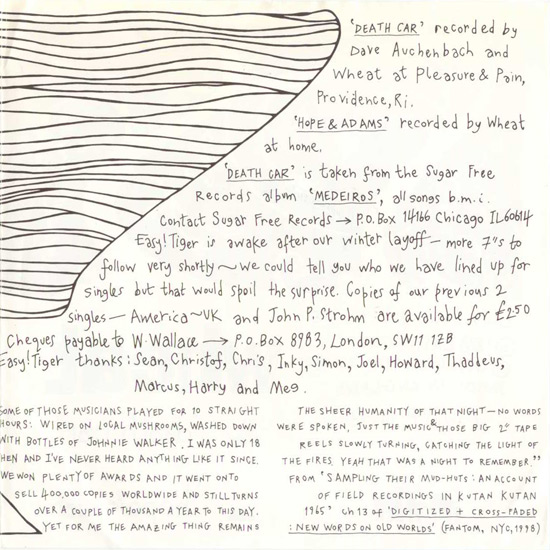 'DEATH CAR' recorded by
Dave Auchenbach and
Wheat at Pleasure & Pain,
Providence, Ri.
'HOPE & ADAMS' recorded by Wheat
at home.
'DEATH CAR' is taken from the Sugar Free
Records album 'MEDEIROS', all songs b.m.i.
Contact Sugar Free Records → P.O. Box 14166 Chicago IL60614
Easy! Tiger is awake after our winter layoff — more 7"s to
follow very shortly ~ we could tell you who we have lined up for
singles but that would spoil the surprise. Copies of our previous 2
singles — America ~ UK and John P. Strohm are available for £2.50
Cheques payable to W. Wallace → P.O. Box 8983, London, SW11 12B
Easy! Tiger thanks: Sean, Christof, Chris, Inky, Simon, Joel, Howard, Thaddeus,
Marcus, Harry and Meg.
SOME OF THOSE MUSICIANS PLAYED FOR 10 STRAIGHT
HOURS: WIRED ON LOCAL MUSHROOMS, WASHED DOWN
WITH BOTTLES OF JOHNNIE WALKER. I WAS ONLY 18
THEN AND I'VE NEVER HEARD ANYTHING LIKE IT SINCE.
WE WON PLENTY OF AWARDS AND IT WENT ONTO
SELL 400,000 COPIES WORLDWIDE AND STILL TURNS
OVER A COUPLE OF THOUSAND A YEAR TO THIS DAY.
YET FOR ME THE AMAZING THING REMAINS
THE SHEER HUMANITY OF THAT NIGHT — NO WORDS
WERE SPOKEN, JUST THE MUSIC & THOSE BIG 2" TAPE
REELS SLOWLY TURNING, CATCHING THE LIGHT OF
THE FIRES. YEAH THAT WAS A NIGHT TO REMEMBER."
FROM 'SAMPLING THEIR MUD-HUTS: AN ACCOUNT
OF FIELD RECORDINGS IN KUTAN KUTAN
1965' ch 13 of 'DIGITIZED + CROSS-FADED
: NEW WORDS ON OLD WORLDS' (FANTOM, NYC, 1998)